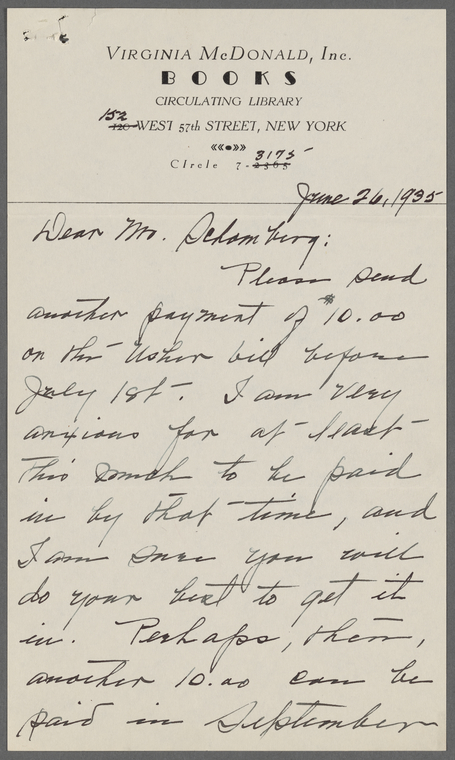 VIRGINIA McDONALD, Inc.
BOOKS
CIRCULATING LIBRARY
152
120 WEST 57th STREET, NEW YORK
3175
CIrcle 7-2365
June 26, 1935
Dear Mr. Schomberg:
Please send
another payment of $10.00
on the Usher bill before
July 1st. I am very
anxious for at least
this much to be paid
in by that time, and
I am sure you will
do your best to get it
in. Perhaps, then,
another 10.00 can be
paid in September